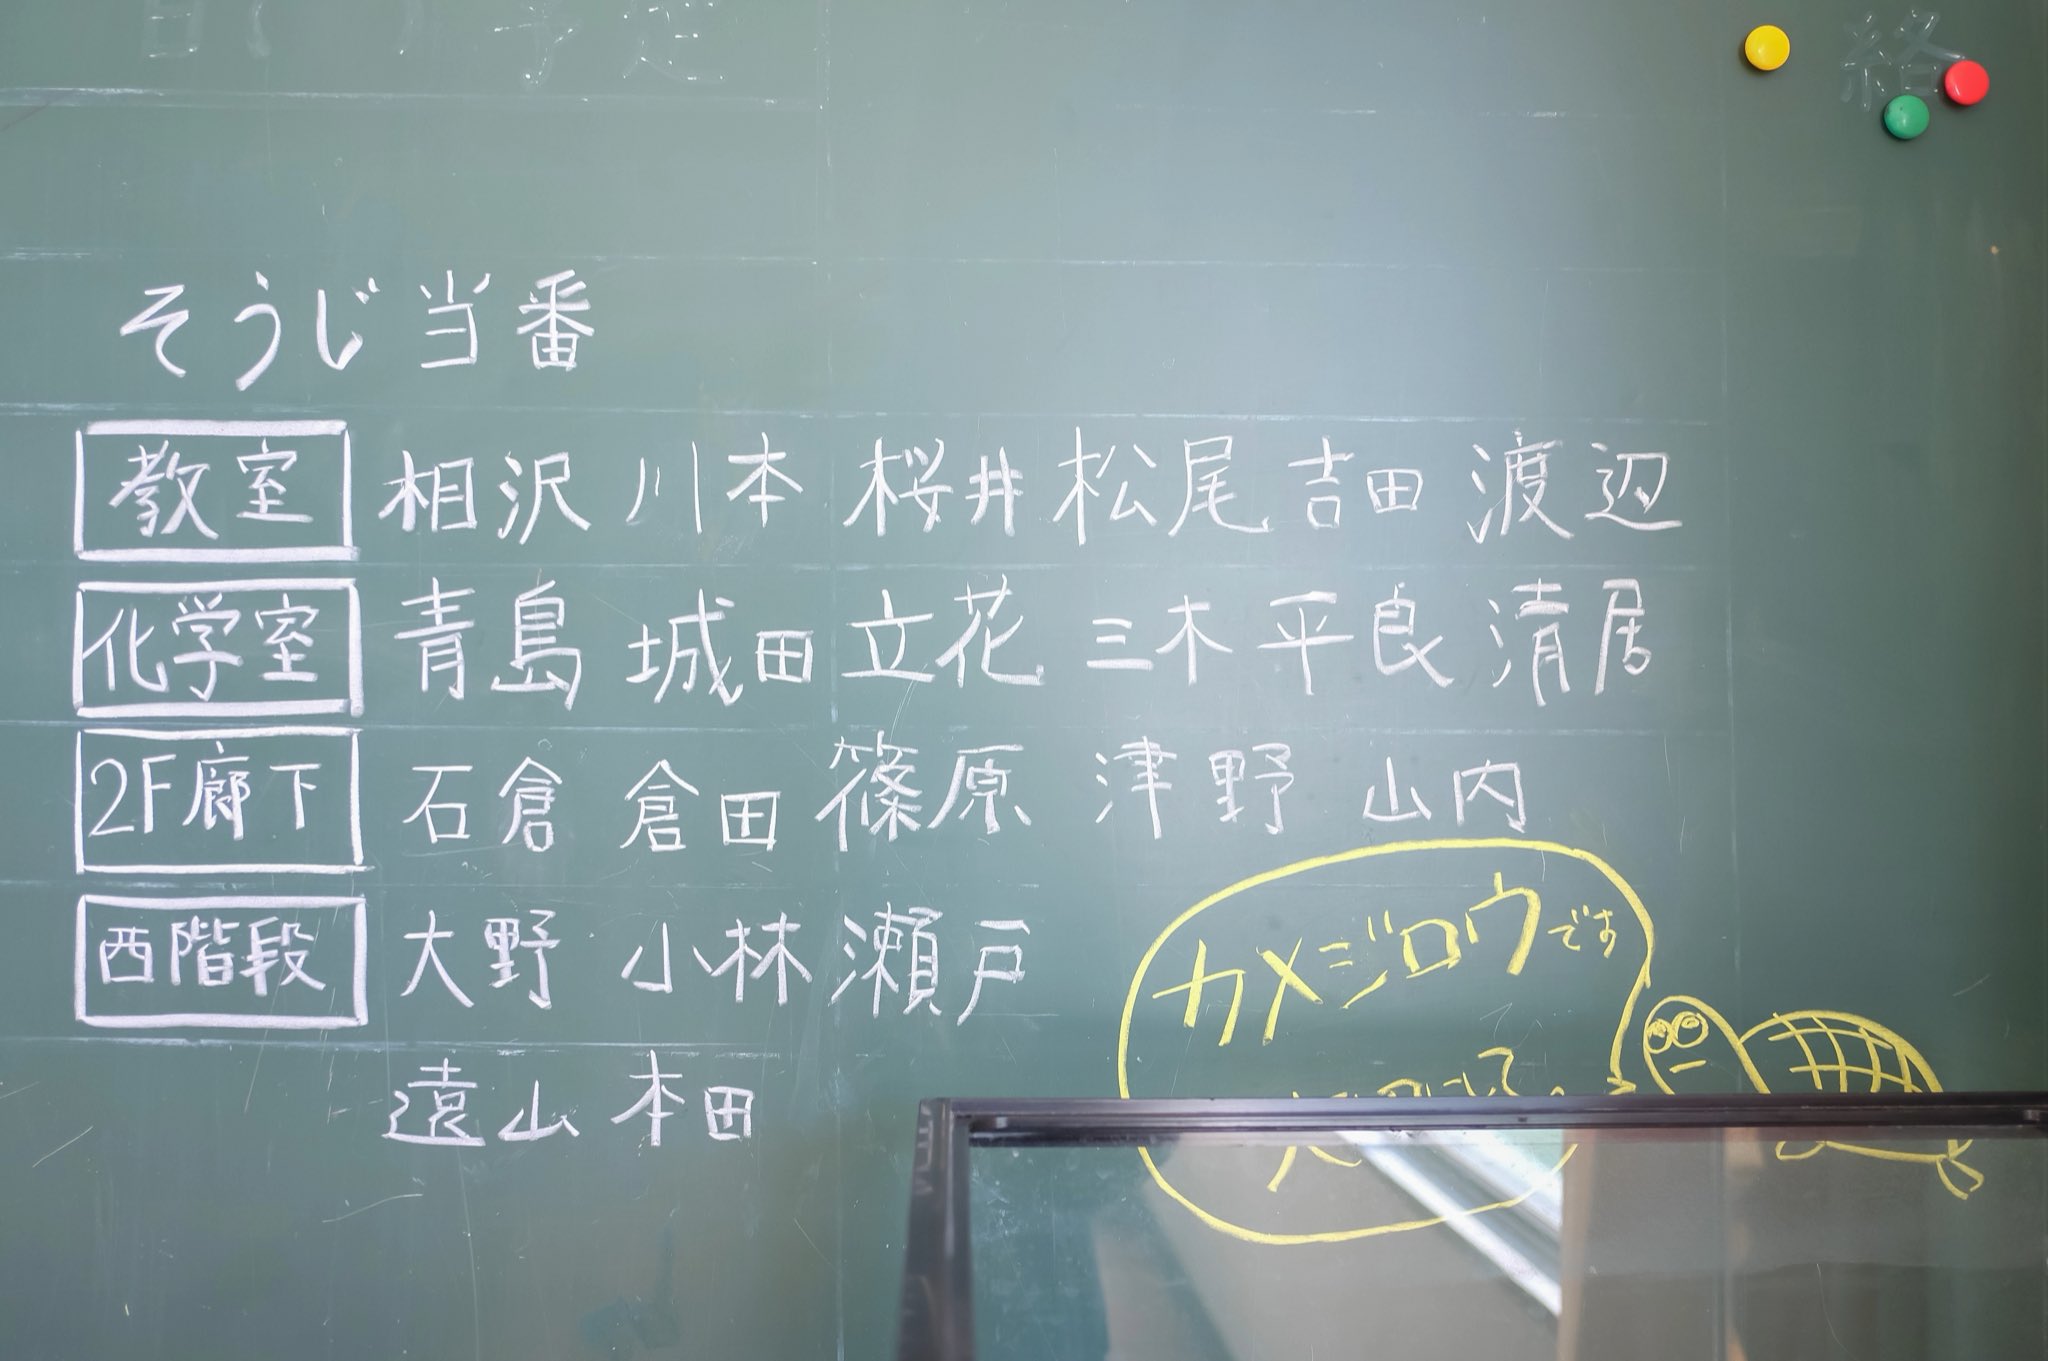 日( )予定
絡
そうじ当番
教室 相沢 川本 桜井 松尾 吉田 渡辺
化学室 青島 城田 立花 三木 平良 清居
2F廊下 石倉 倉田 篠原 津野 山内
西階段 大野 小林 瀬戸
遠山 本田
カメジロウです